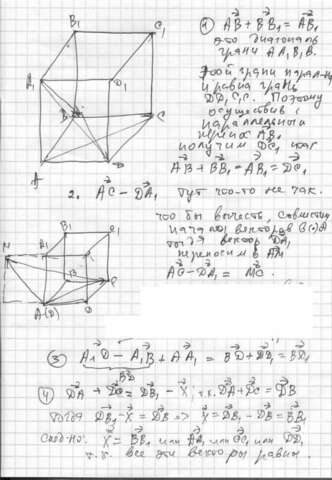 1) AB + BB₁ = AB₁
это диагональ
грани AA₁B₁B.
Этой грани паралл-на
и равна грань
DD₁C₁C. Поэтому
осуществив
параллельный
перенос AB₁
получим DC₁, как
AB + BB₁ = AB₁ = DC₁
B₁ C₁
A₁ D₁
B C
A D
2. AC - DA₁ тут что-то не так.
что бы вычесть, совместим
начала векторов
вектор DA₁
переносим в AM
AC - DA₁ = MC
B₁ C₁
M A₁
B C
A(D) D
③ A₁D - A₁B + AA₁ = BD + DD₁ = BD₁
BD
④ DA + DC = DB₁ - X, т.к. DA + DC = DB
тогда DB₁ - X = DB => X = DB₁ - DB = BB₁
X = BB₁ или AA₁ или CC₁ или DD₁
т.к. все эти векторы равны.